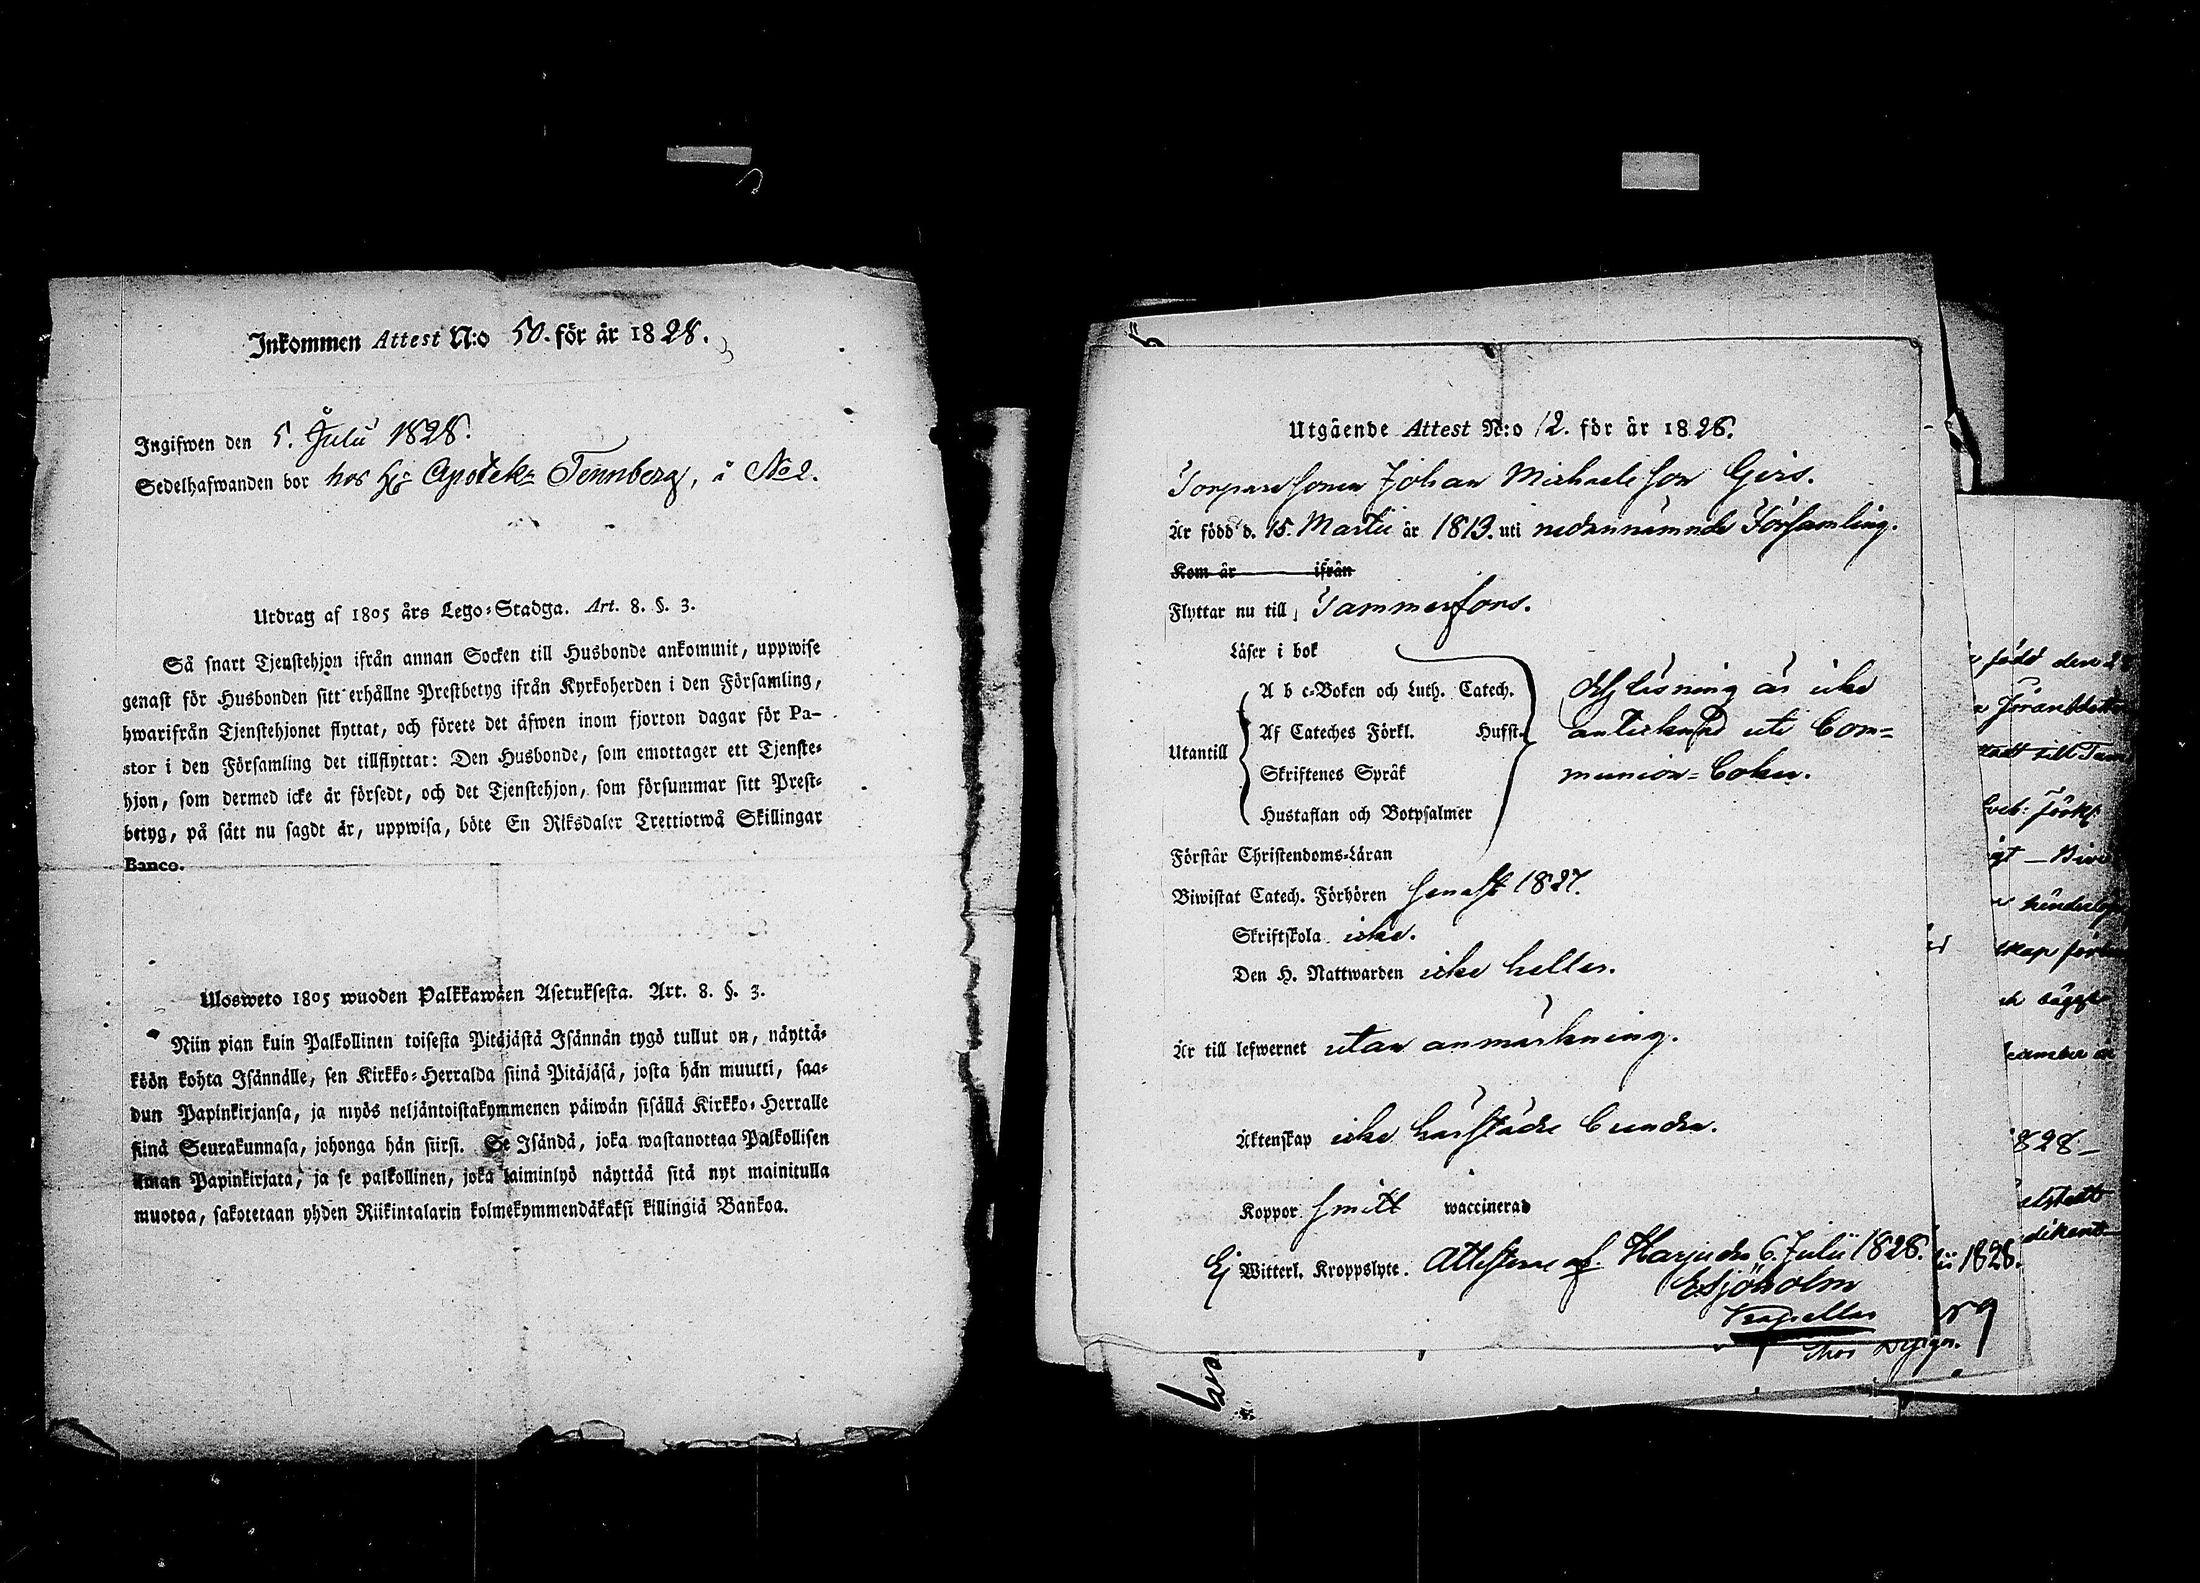 Inkommen Attest N:o 50. för år 1828.
Ingifwen den 5. Julii 1828.
Sedelhafwanden bor hos Hr Apotek: Tennberg, i No 2.
Utdrag af 1805 års Lego-Stadga. Art. 8. §. 3.
Så snart Tjenstehjon ifrån annan Socken till Husbonde ankommit, uppwise
genast för Husbonden sitt erhållne Prestbetyg ifrån Kyrkoherden i den Församling,
hwarifrån Tjenstehjonet flyttat, och förete det äfwen inom fjorton dagar för Pa-
stor i den Församling det tillflyttat: Den Husbonde, som emottager ett Tjenste-
hjon, som dermed icke är försedt, och det Tjenstehjon, som försummar sitt Prest-
betyg, på sätt nu sagdt är, uppwisa, böte En Riksdaler Trettiotwå Skillingar
Banco.
Ulosweto 1805 wuoden Palkkawäen Asetuksesta. Art. 8. §. 3.
Niin pian kuin Palkollinen toisesta Pitäjästä Isännän tygö tullut on, näyttä-
köön kohta Isännälle, sen Kirkko-Herralda siinä Pitäjäsä, josta hän muutti, saa-
dun Papinkirjansa, ja myös neljäntoistakymmenen päiwän sisällä Kirkko-Herralle
siinä Seurakunnasa, johonga hän siirsi. Se Isändä, joka wastanottaa Palkollisen
ilman Papinkirjata, ja se palkollinen, joka laiminlyö näyttää sitä nyt mainitulla
muotoa, sakotetaan yhden Riikintalarin kolmekymmendäkaksi killingiä Bankoa.
Utgående Attest N:o 12. för år 1828.
Torpare sonen Johan Michaelsson Geis.
Är född d. 15. Martii år 1813. uti nedannämnde Församling.
Kom år ifrån
Flyttar nu till Tammerfors.
Läser i bok
A b c-Boken och Luth. Catech.
Af Cateches Förkl. Hufst.
Utantill
Skriftenes Språk
Hustaflan och Botpsalmer
läsning är icke
antecknad uti Com-
munion-Boken.
Förstår Christendoms-Läran
Biwistat Catech. Förhören senast 1827.
Skriftskola icke.
Den H. Nattwarden icke heller.
Är till lefwernet utan anmärkning.
Äktenskap icke härstädes bunden.
Koppor smitt waccinerad
Ej Witterl. Kroppslyte. Attesterar af. Harju den 6. Julii 1828.
E Sjöholm
Capellan
född den
1828
1828.